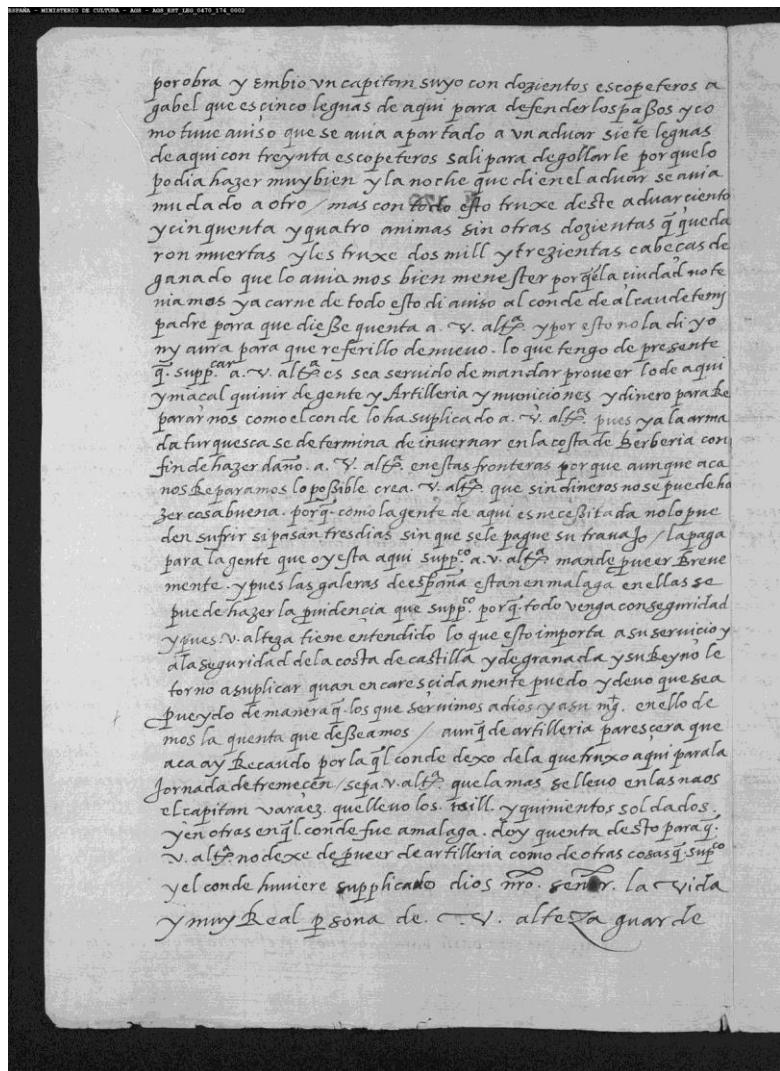 ESPAÑA - MINISTERIO DE CULTURA - AGS - AGS_EST_LEG_0470_174_0002
por obra y embio vn capitan suyo con dozientos escopeteros a
gabel que es cinco leguas de aqui para defender los paßos y co
mo tuue auiso que se auia apartado a vn aduar siete leguas
de aqui con treynta escopeteros sali para degollarle porque lo
podia hazer muy bien y la noche que di en el aduar se auia
mudado a otro / mas con todo esto truxe deste aduar ciento
y cinquenta y quatro animas sin otras dozientas q̃ queda
ron muertas y les truxe dos mill y trezientas cabeças de
ganado que lo auiamos bien menester porq̃ la ciudad no te
niamos ya carne de todo esto di auiso al conde de alcaudete mi
padre para que dieße quenta a. v. altª. y por esto no la di yo
ny aura para que referillo de nueuo. lo que tengo de presente
q̃. supp.car a. v. altª es sea seruido de mandar proueer lo de aqui
y maçalquiuir de gente y Artilleria y municiones y dinero para Re
pararnos como el conde lo ha suplicado a. v. altª. pues ya la arma
da turquesca se determina de inuernar en la costa de Berberia con
fin de hazer daño. a. v. altª. en estas fronteras porque aunque aca
nos Reparamos lo poßible crea. v. altª. que sin dineros no se puede ha
zer cosa buena. porq̃. como la gente de aqui es neceßitada no lo pue
den sufrir si pasan tres dias sin que se le pague su trauajo / la paga
para la gente que oy esta aqui supp.co a. v. altª mande p̃ueer Breue
mente. y pues las galeras de españa estan en malaga en ellas se
puede hazer la p̃uidencia que supp.co porq̃. todo venga con seguridad
y pues. v. alteza tiene entendido lo que esto importa a su seruicio y
a la seguridad de la costa de castilla y de granada y su Reyno le
torno a suplicar quan encarescidamente puedo y deuo que sea
p̃ueydo de manera q̃. los que seruimos a dios y a su mg̃. en ello de
mos la quenta que deßeamos / aunq̃ de artilleria parescera que
aca ay Recaudo por la q̃l conde dexo de la que truxo aqui para la
Jornada de tremeçen / sepa. v. altª. que la mas se lleuo en las naos
el capitan varaez. que lleuo los. mill. y quinientos soldados.
y en otras en q̃l. conde fue a malaga. doy quenta desto para q̃.
v. altª. no dexe de p̃ueer de artilleria como de otras cosas q̃. supco
y el conde huuiere supplicado dios nr̃o. señor. la vida
y muy Real p̃sona de. V. alteza guarde